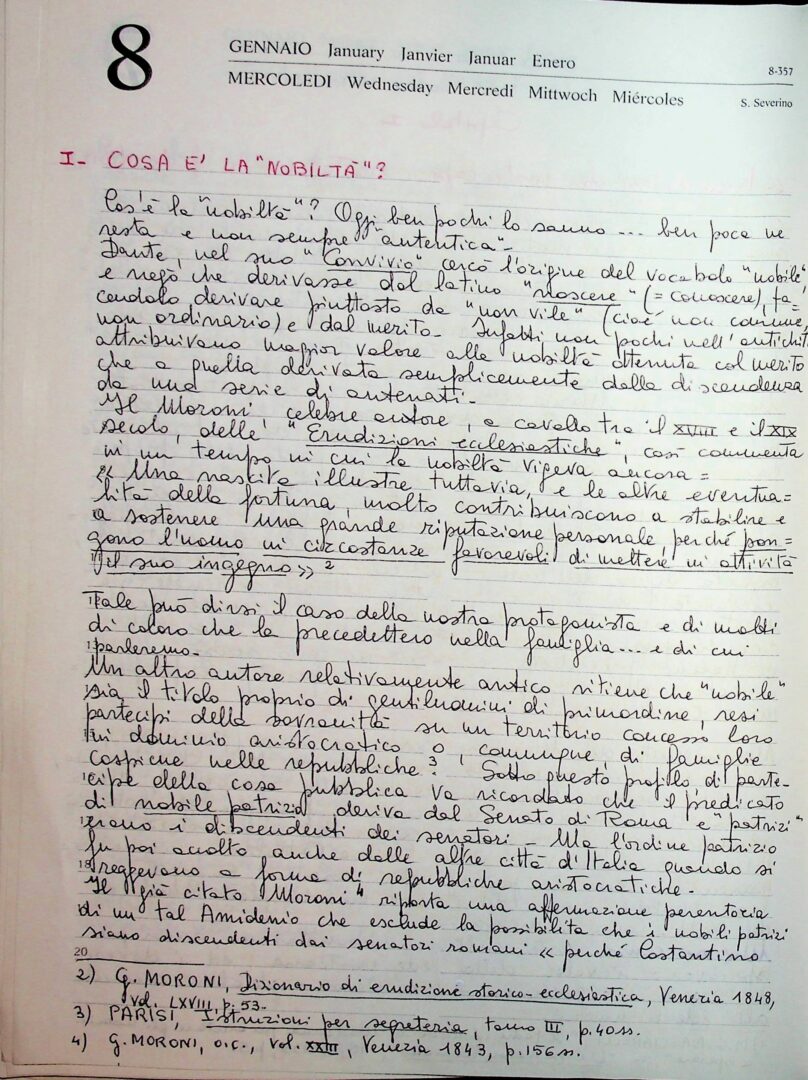 8
GENNAIO January Janvier Januar Enero
8-357
MERCOLEDI Wednesday Mercredi Mittwoch Miércoles
S. Severino
I- COSA E' LA "NOBILTÀ"?
Cos'è la "nobiltà"? Oggi ben pochi lo sanno ... ben poca ne
resta e non sempre "autentica".
Dante, nel suo "Convivio" cercò l'origine del vocabolo "nobile"
e negò che derivasse dal latino "noscere" (= conoscere), fa=
cendolo derivare piuttosto da "non vile" (cioè non comune,
non ordinario) e dal merito. Infatti non pochi nell'antichit
attribuivano maggior valore alla nobiltà ottenuta col merito
che a quella derivata semplicemente dalla discendenza
da una serie di antenati.
Il Moroni, celebre autore, a cavallo tra il XVIII e il XIX
secolo, delle "Erudizioni ecclesiastiche", così commenta
in un tempo in cui la nobiltà vigeva ancora =
« Una nascita illustre tuttavia, e le altre eventua=
lità della fortuna, molto contribuiscono a stabilire e
a sostenere una grande riputazione personale perché pon=
gono l'uomo in circostanze favorevoli di mettere in attività
il suo ingegno » 2
Tale può dirsi il caso della nostra protagonista e di molti
di coloro che la precedettero nella famiglia ... e di cui
parleremo.
Un altro autore relativamente antico ritiene che "nobile"
sia il titolo proprio di gentiluomini di primordine, resi
partecipi della sovranità su un territorio concesso loro
in dominio aristocratico o, comunque, di famiglie
cospicue nelle repubbliche 3. Sotto questo profilo di parte-
cipe della cosa pubblica va ricordato che il predicato
di nobile patrizio deriva dal Senato di Roma e "patrizi"
erano i discendenti dei senatori - Ma l'ordine patrizio
fu poi accolto anche dalle altre città d'Italia quando si
18 reggevano a forma di repubbliche aristocratiche.
Il già citato Moroni 4 riporta una affermazione perentoria
di un tal Amidenio che esclude la possibilità che i nobili patrizi
siano discendenti dai senatori romani « perché Costantino
20
2) G. MORONI, Dizionario di erudizione storico-ecclesiastica, Venezia 1848,
vol. LXVIII, p. 53.
3) PARISI, Istruzioni per segreteria, tomo III, p. 40 ss.
4) G. MORONI, o.c., vol. XXIII, Venezia 1843, p. 156 ss.